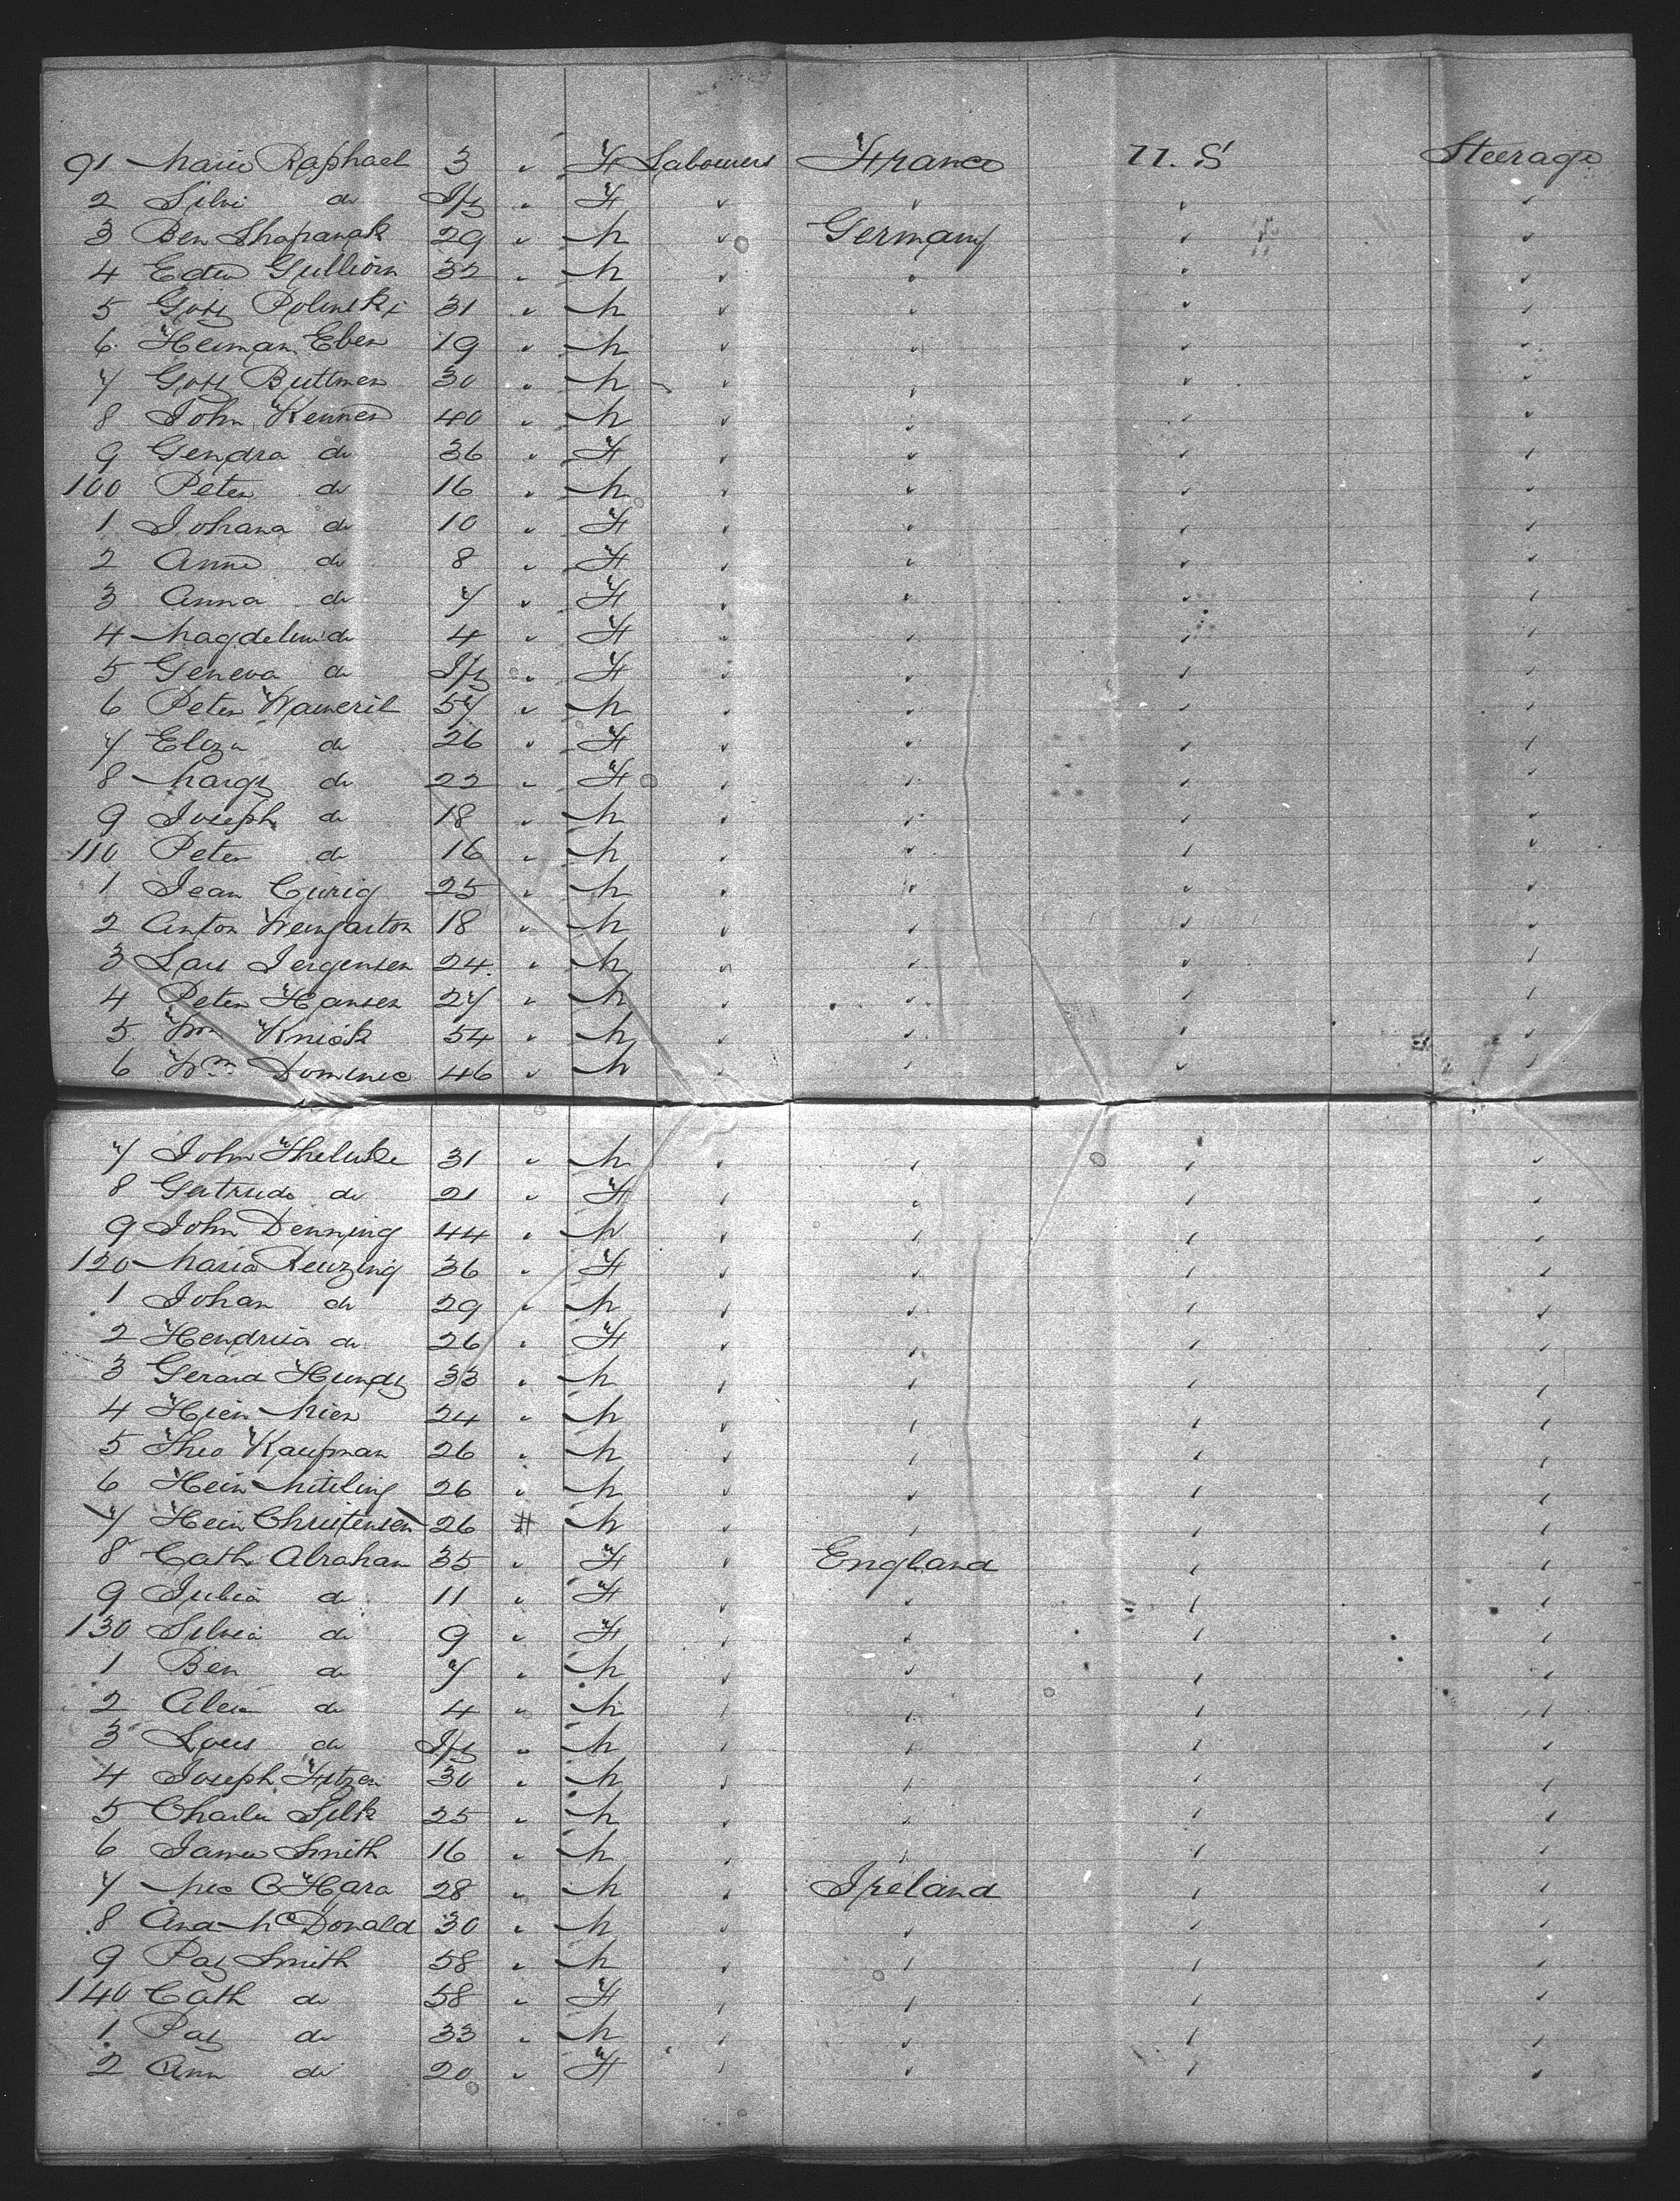 91 Marie Raphael 3 " F Labourers France U.S Steerage
2 Silvi do Inf " F " " " "
3 Ben Shapanak 29 " M " Germany " "
4 Edw Gullion 32 " M " " " "
5 Gotz Polinski 31 " M " " " "
6 Heiman Eben 19 " M " " " "
7 Gotz Buttmen 30 " M " " " "
8 John Kennen 40 " M " " " "
9 Gendra do 36 " F " " " "
100 Peter do 16 " M " " " "
1 Johana do 10 " F " " " "
2 Anne do 8 " F " " " "
3 Anna do 7 " F " " " "
4 Magdelin do 4 " F " " " "
5 Geneva do Inf " F " " " "
6 Peter 57 " M " " " "
7 Eliza do 26 " F " " " "
8 Margt do 22 " F " " " "
9 Joseph do 18 " M " " " "
110 Peter do 16 " M " " " "
1 Jean Curig 25 " M " " " "
2 Anton Weingarton 18 " M " " " "
3 Lars Jergensen 24 " M " " " "
4 Peter Hansen 27 " M " " " "
5 Wm Kniok 54 " M " " " "
6 Wm Dominec 46 " M " " " "
7 John Theluke 31 " M " " " "
8 Gertrude do 21 " F " " " "
9 John Denning 44 " M " " " "
120 Maria Reuzing 36 " F " " " "
1 Johan do 29 " M " " " "
2 Hendrica do 26 " F " " " "
3 Gerard Hundt 33 " M " " " "
4 Hein Mien 24 " M " " " "
5 Theo Kaufman 26 " M " " " "
6 Hein Miteling 26 " M " " " "
7 Hein Christensen 26 " M " " " "
8 Cath Abraham 35 " F " England " "
9 Julia do 11 " F " " " "
130 Silvia do 9 " F " " " "
1 Ben do 7 " M " " " "
2 Alex do 4 " M " " " "
3 Louis do Inf " M " " " "
4 Joseph 30 " M " " " "
5 Charles Silk 25 " M " " " "
6 James Smith 16 " M " " " "
7 Mic O'Hara 28 " M " Ireland " "
8 And McDonald 30 " M " " " "
9 Pat Smith 58 " M " " " "
140 Cath do 58 " F " " " "
1 Pat do 33 " M " " " "
2 Ann do 20 " F " " " "